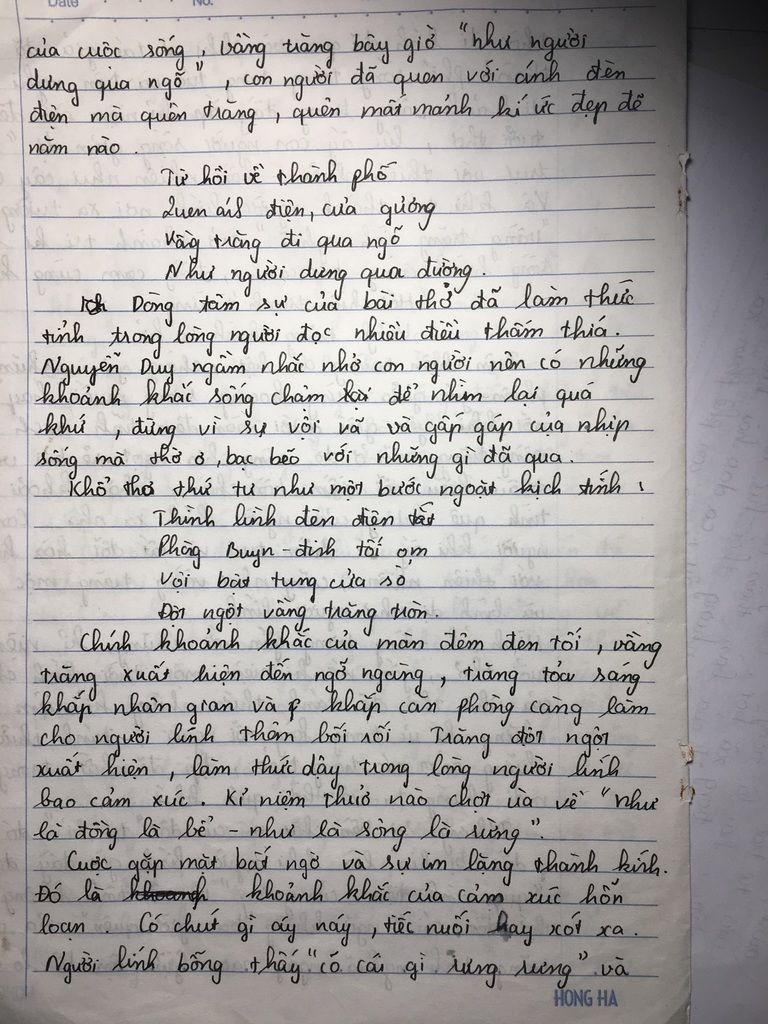 Date No.
của cuộc sống, vầng trăng bây giờ "như người
dưng qua ngõ", con người đã quen với ánh đèn
điện mà quên trăng, quên mất mảnh kí ức đẹp đẽ
năm nào.
Từ hồi về thành phố
Quen ánh điện, cửa gương
Vầng trăng đi qua ngõ
Như người dưng qua đường.
Dòng tâm sự của bài thơ đã làm thức
tỉnh trong lòng người đọc nhiều điều thấm thía.
Nguyễn Duy ngầm nhắc nhở con người nên có những
khoảnh khắc sống chậm lại để nhìn lại quá
khứ, đừng vì sự vội vã và gấp gáp của nhịp
sống mà thờ ơ, bạc bẽo với những gì đã qua.
Khổ thơ thứ tư như một bước ngoặt kịch tính:
Thình lình đèn điện tắt
Phòng Buyn-đinh tối om
Vội bật tung cửa sổ
Đột ngột vầng trăng tròn.
Chính khoảnh khắc của màn đêm đen tối, vầng
trăng xuất hiện đến ngỡ ngàng, trăng tỏa sáng
khắp nhân gian và khắp căn phòng càng làm
cho người lính thêm bối rối. Trăng đột ngột
xuất hiện, làm thức dậy trong lòng người lính
bao cảm xúc. Kỉ niệm thuở nào chợt ùa về "như
là đồng là bể - như là sông là rừng".
Cuộc gặp mặt bất ngờ và sự im lặng thành kính.
Đó là khoảnh khắc của cảm xúc hỗn
loạn. Có chút gì áy náy, tiếc nuối hay xót xa.
Người lính bỗng thấy "có cái gì rưng rưng" và
HONG HA